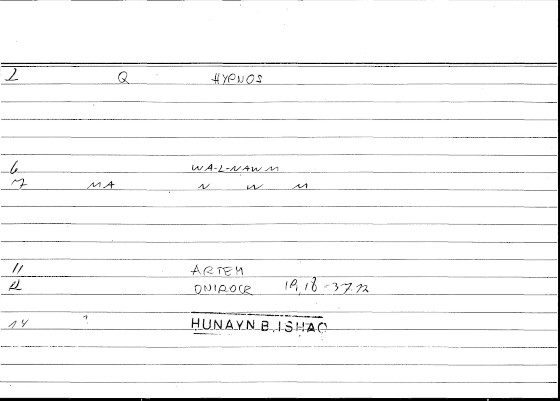 2 Q HYPNOS
6 WA-L-NAWM
7 MA N W M
11 ARTEM
12 ONIROCR 19,18-37.12
14 ? HUNAYN B. ISHAQ